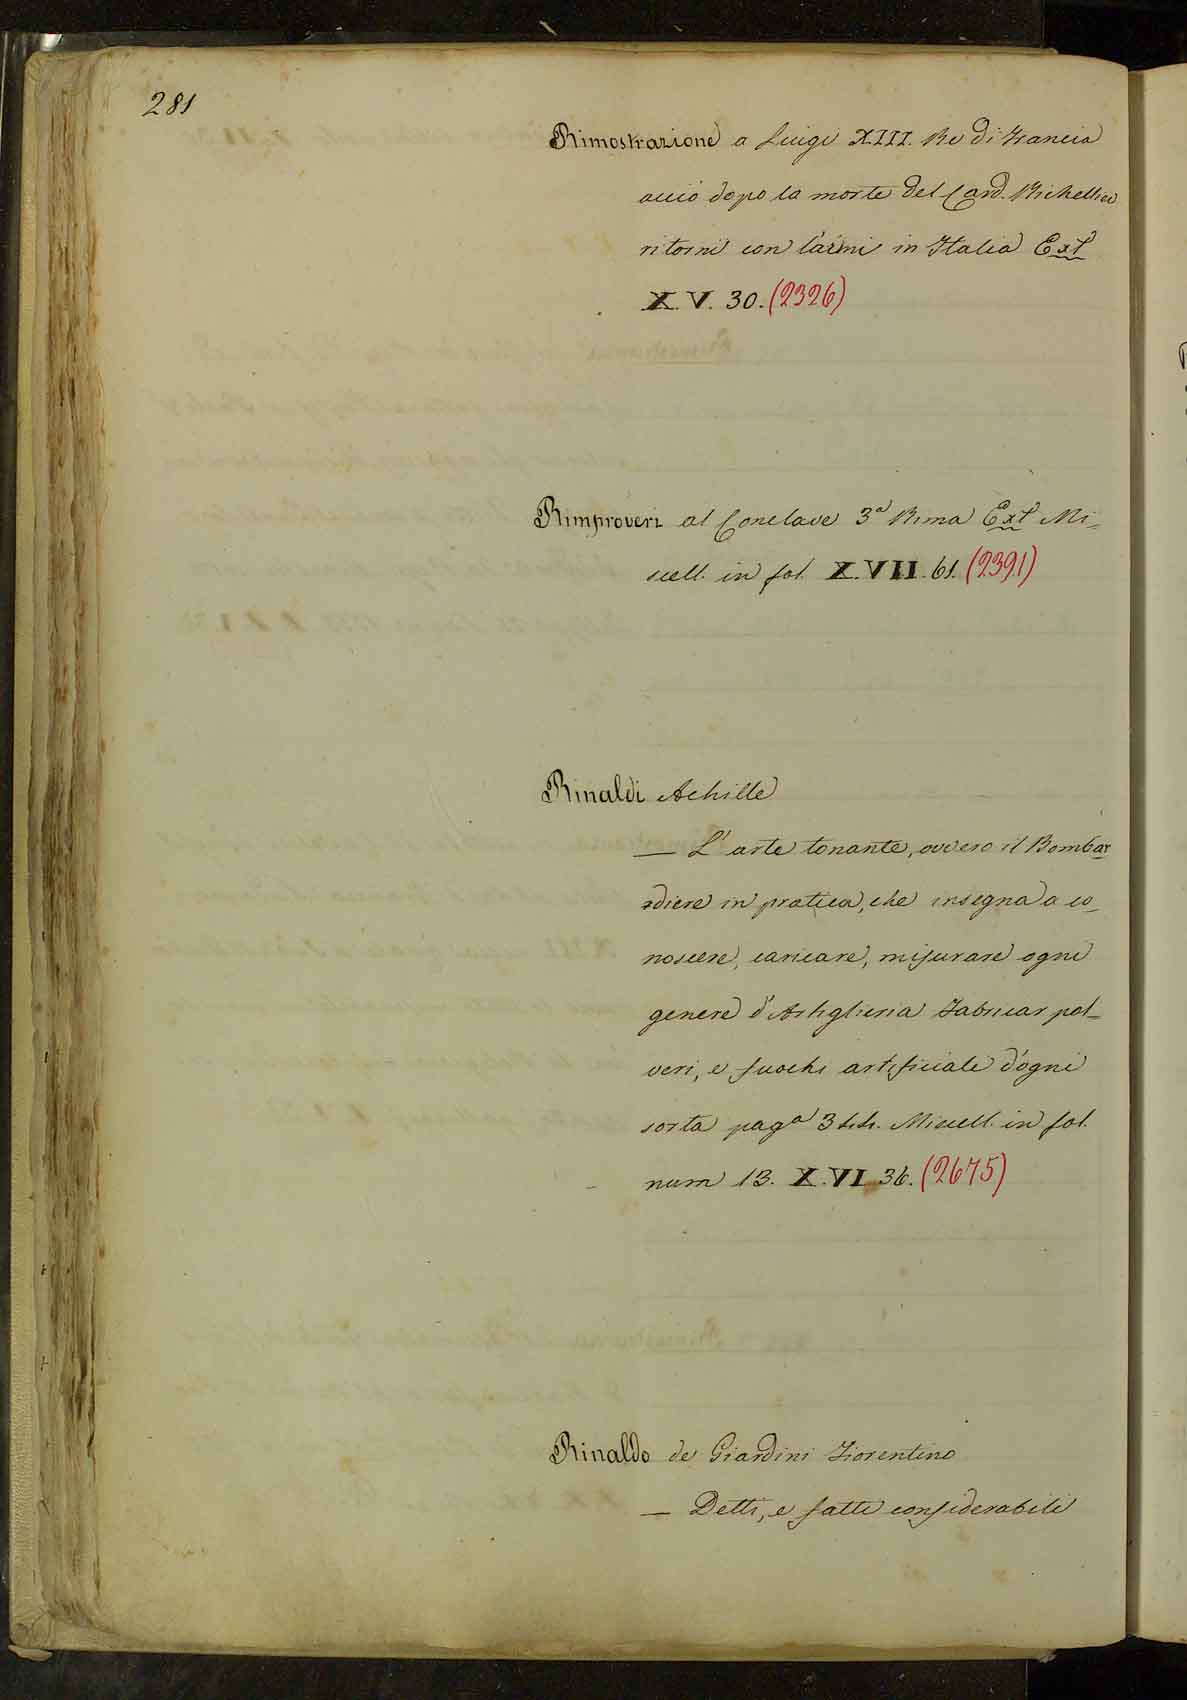 281
Rimostrazione a Luigi XIII. Re di Francia
acciò dopo la morte del Card. Richellieu
ritorni con l'armi in Italia Ext
X. V. 30. (2326)
Rimproveri al Conclave 3ª Rima Ext Mi-
scell. in fol. X. VII. 61. (2391)
Rinaldi Achille
— L'arte tonante, ovvero il Bombar
diere in pratica, che insegna a co-
noscere, caricare, misurare ogni
genere d'Artiglieria Fabricar pol-
veri, e fuochi artificiali d'ogni
sorta pagª 344. Miscell. in fol.
num 13. X. VI 36. (2675)
Rinaldo de Giardini Fiorentino
— Detti, e fatti considerabili